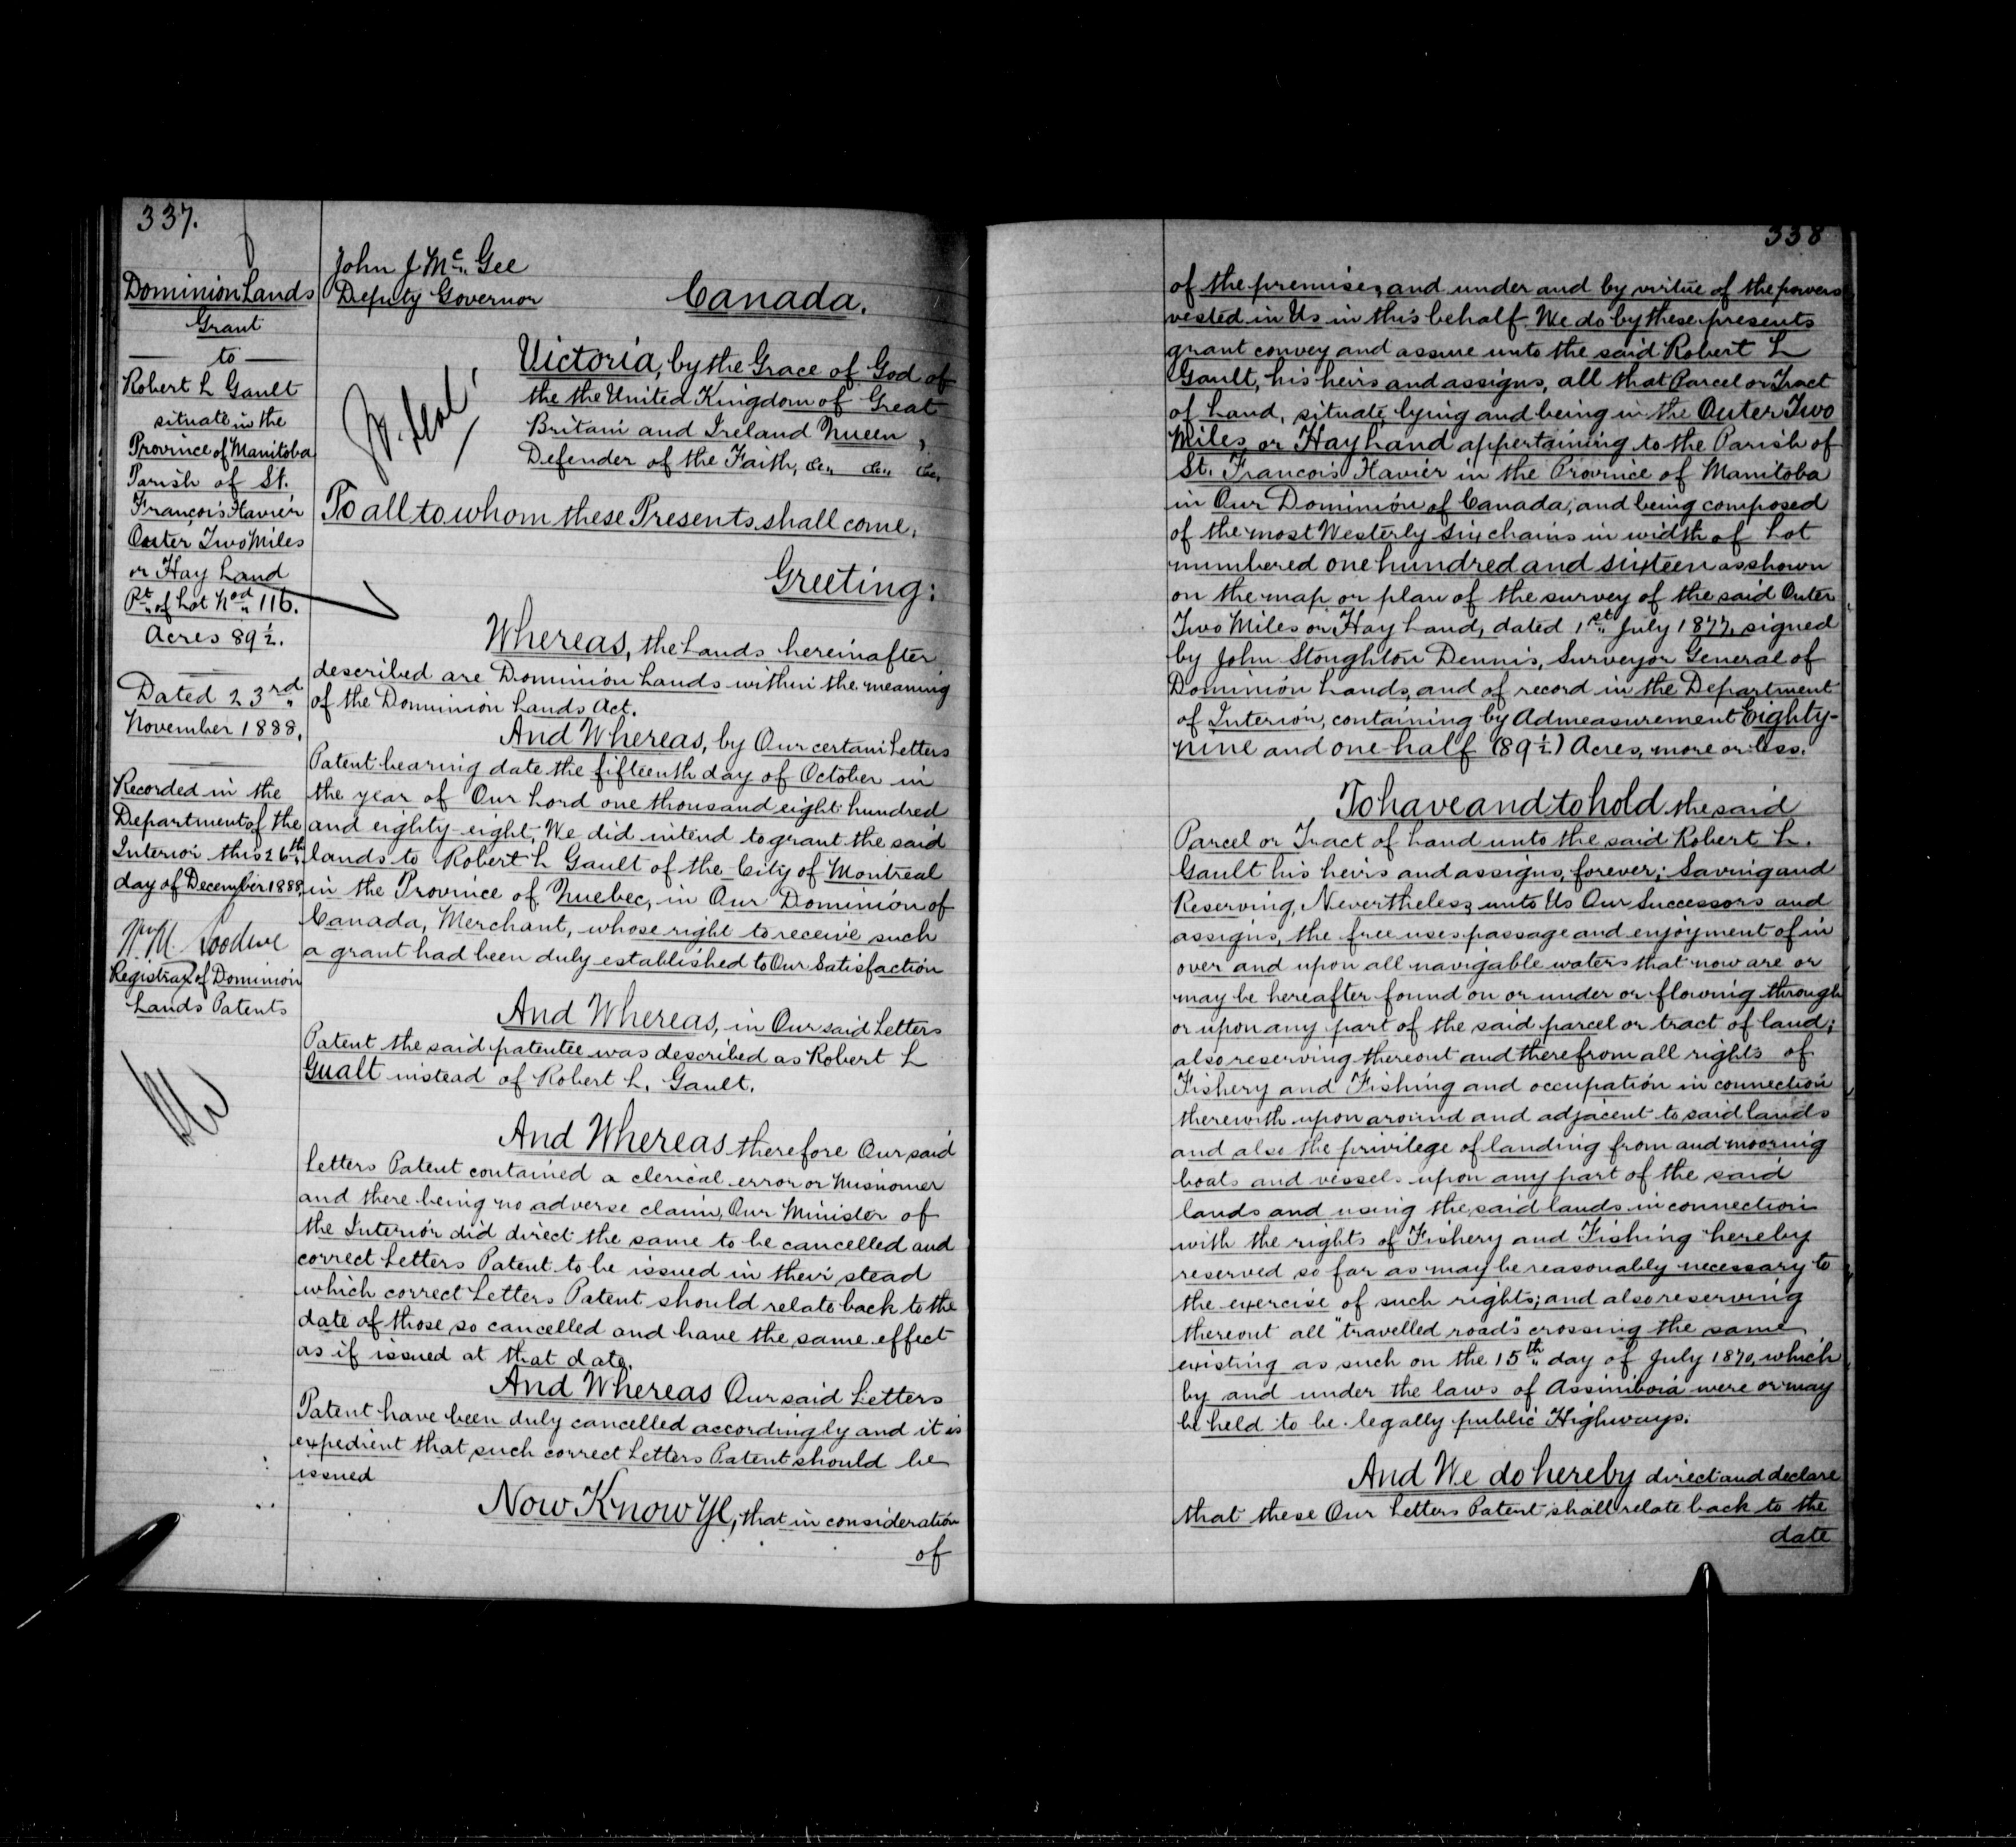 337.
Dominion Lands
Grant
to
Robert L Gault
situate in the
Province of Manitoba
Parish of St.
François Xavier
Outer Two Miles
or Hay Land
Pt. of Lot Nod 116.
Acres 89 1/2.
Dated 23rd
November 1888.
Recorded in the
Department of the
Interior this 26th
day of December 1888
Registrar of Dominion
Lands Patents
John J. Mc Gee
Deputy Governor
Canada.
Victoria, by the Grace of God of
the the United Kingdom of Great
Britain and Ireland Queen,
Defender of the Faith, &c., &c., &c.,
To all to whom these Presents shall come,
Greeting:
Whereas, the Lands hereinafter
described are Dominion Lands within the meaning
of the Dominion Lands Act.
And Whereas, by Our certain Letters
Patent bearing date the fifteenth day of October in
the year of Our Lord one thousand eight hundred
and eighty-eight, We did intend to grant the said
lands to Robert L Gault of the City of Montreal
in the Province of Quebec, in Our Dominion of
Canada, Merchant, whose right to receive such
a grant had been duly established to Our Satisfaction
And Whereas, in Our said Letters
Patent the said patentee was described as Robert L
Gualt instead of Robert L. Gault.
And Whereas therefore Our said
Letters Patent contained a clerical error or Misnomer
and there being no adverse claim, Our Minister of
the Interior did direct the same to be cancelled and
correct Letters Patent to be issued in their stead
which correct Letters Patent should relate back to the
date of those so cancelled and have the same effect
as if issued at that date.
And Whereas Our said Letters
Patent have been duly cancelled accordingly and it is
expedient that such correct Letters Patent should be
issued
Now Know Ye, that in consideration
of
338
of the premises, and under and by virtue of the powers
vested in Us in this behalf We do by these presents
grant convey and assure unto the said Robert L
Gault, his heirs and assigns, all that Parcel or Tract
of Land, situate, lying and being in the Outer Two
Miles or Hay Land appertaining to the Parish of
St. François Xavier in the Province of Manitoba
in Our Dominion of Canada, and being composed
of the most Westerly six chains in width of Lot
numbered one hundred and sixteen as shown
on the map or plan of the survey of the said Outer
Two Miles or Hay Land, dated 1st July 1877, signed
by John Stoughton Dennis, Surveyor General of
Dominion Lands, and of record in the Department
of Interior, containing by Admeasurement Eighty-
nine and one-half (89 1/2) Acres, more or less.
To have and to hold the said
Parcel or Tract of Land unto the said Robert L.
Gault his heirs and assigns, forever; Saving and
Reserving, Nevertheless, unto Us Our Successors and
assigns, the free uses passage and enjoyment of in
over and upon all navigable waters that now are or
may be hereafter found on or under or flowing through
or upon any part of the said parcel or tract of land;
also reserving thereout and therefrom all rights of
Fishery and Fishing and occupation in connection
therewith upon around and adjacent to said lands
and also the privilege of landing from and mooring
boats and vessels upon any part of the said
lands and using the said lands in connection
with the rights of Fishery and Fishing hereby
reserved so far as may be reasonably necessary to
the exercise of such rights; and also reserving
thereout all "travelled roads" crossing the same
existing as such on the 15th day of July 1870, which
by and under the laws of Assiniboia were or may
be held to be legally public Highways.
And We do hereby direct and declare
that these Our Letters Patent shall relate back to the
date